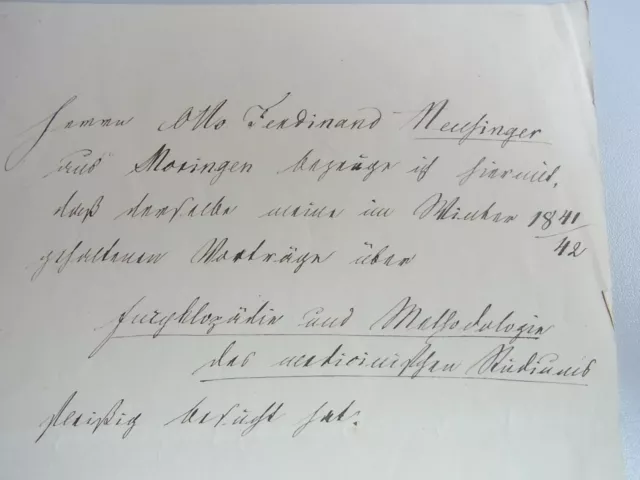 Herrn Otto Ferdinand Meusinger
aus Moringen bezeuge ich hiermit,
daß derselbe meine im Winter 1841/42
gehaltenen Vorträge über
Encyklopädie und Methodologie
des medicinischen Studiums
fleißig besucht hat.